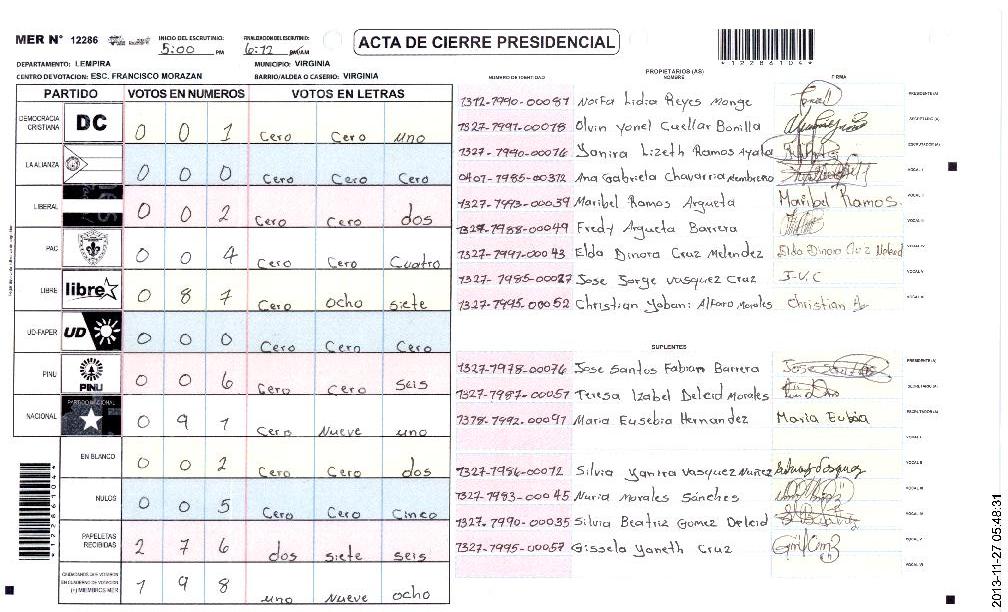 MER N° 12286
INICIO DEL ESCRUTINIO: 5:00 PM
FINALIZACION DEL ESCRUTINIO: 6:12 PM/AM
ACTA DE CIERRE PRESIDENCIAL
*12286104*
DEPARTAMENTO: LEMPIRA MUNICIPIO: VIRGINIA
CENTRO DE VOTACION: ESC. FRANCISCO MORAZAN BARRIO/ALDEA O CASERIO: VIRGINIA
PARTIDO VOTOS EN NUMEROS VOTOS EN LETRAS
DEMOCRACIA CRISTIANA DC 0 0 1 Cero Cero uno
LA ALIANZA 0 0 0 Cero Cero Cero
LIBERAL 0 0 2 Cero Cero dos
PAC 0 0 4 Cero Cero Cuatro
LIBRE libre 0 8 7 Cero ocho siete
UD-FAPER UD 0 0 0 Cero Cero Cero
PINU PINU 0 0 6 Cero Cero seis
NACIONAL PARTIDO NACIONAL 0 9 1 Cero Nueve uno
EN BLANCO 0 0 2 Cero Cero dos
NULOS 0 0 5 Cero Cero Cinco
PAPELETAS RECIBIDAS 2 7 6 dos siete seis
CIUDADANOS QUE VOTARON EN CUADERNO DE VOTACION (+) MIEMBROS MER 1 9 8 uno Nueve ocho
*12286104*
PROPIETARIOS (AS)
NUMERO DE IDENTIDAD NOMBRE FIRMA
Norfa Lidia Reyes Monge PRESIDENTE (A)
1327-1991-00078 Olvin Yonel Cuellar Bonilla SECRETARIO (A)
1327-1990-00076 Yanira Lizeth Ramos Ayala ESCRUTADOR (A)
0407-1985-00372 Ana Gabriela Chavarria Membreño VOCAL I
1327-1993-00039 Maribel Ramos Argueta Maribel Ramos. VOCAL II
1327-1988-00049 Fredy Argueta Barrera VOCAL III
1327-1997-00043 Elda Dinora Cruz Melendez VOCAL IV
1327-1985-00027 Jose Jorge vasquez Cruz J-V.C VOCAL V
1327-1995-00052 Christian Yobani Alfaro Morales Christian A. VOCAL VI
SUPLENTES
1327-1978-00076 Jose Santos Fabian Barrera PRESIDENTE (A)
1327-1987-00057 Teresa Izabel Deleid Morales SECRETARIO (A)
Maria Eusebia Hernandez ESCRUTADOR (A)
VOCAL I
1327-1986-00072 Silvia Yanira vasquez Nuñez VOCAL II
1327-1983-00045 Nuria Morales Sánches VOCAL III
1327-1990-00035 Silvia Beatriz Gomez Deleid VOCAL IV
1327-1995-00057 Gissela Yaneth Cruz VOCAL V
VOCAL VI
2013-11-27 05:48:31